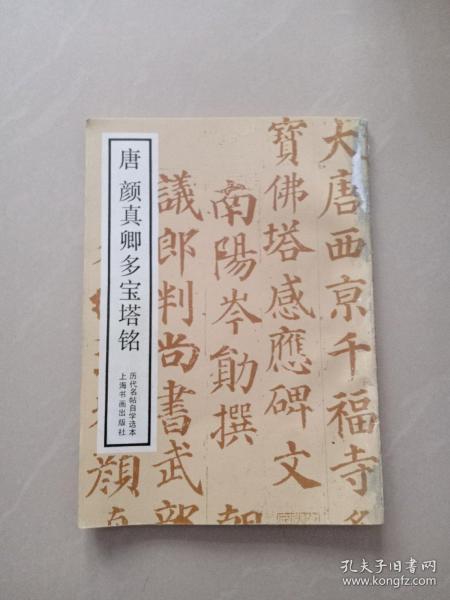 唐 颜真卿多宝塔铭
历代名帖自学选本
上海书画出版社
大唐西京千福寺多
寳佛塔感應碑文
南陽岑勛撰
朝
議郎判尚書武部
顔真
孔夫子旧书网
www.kongfz.com